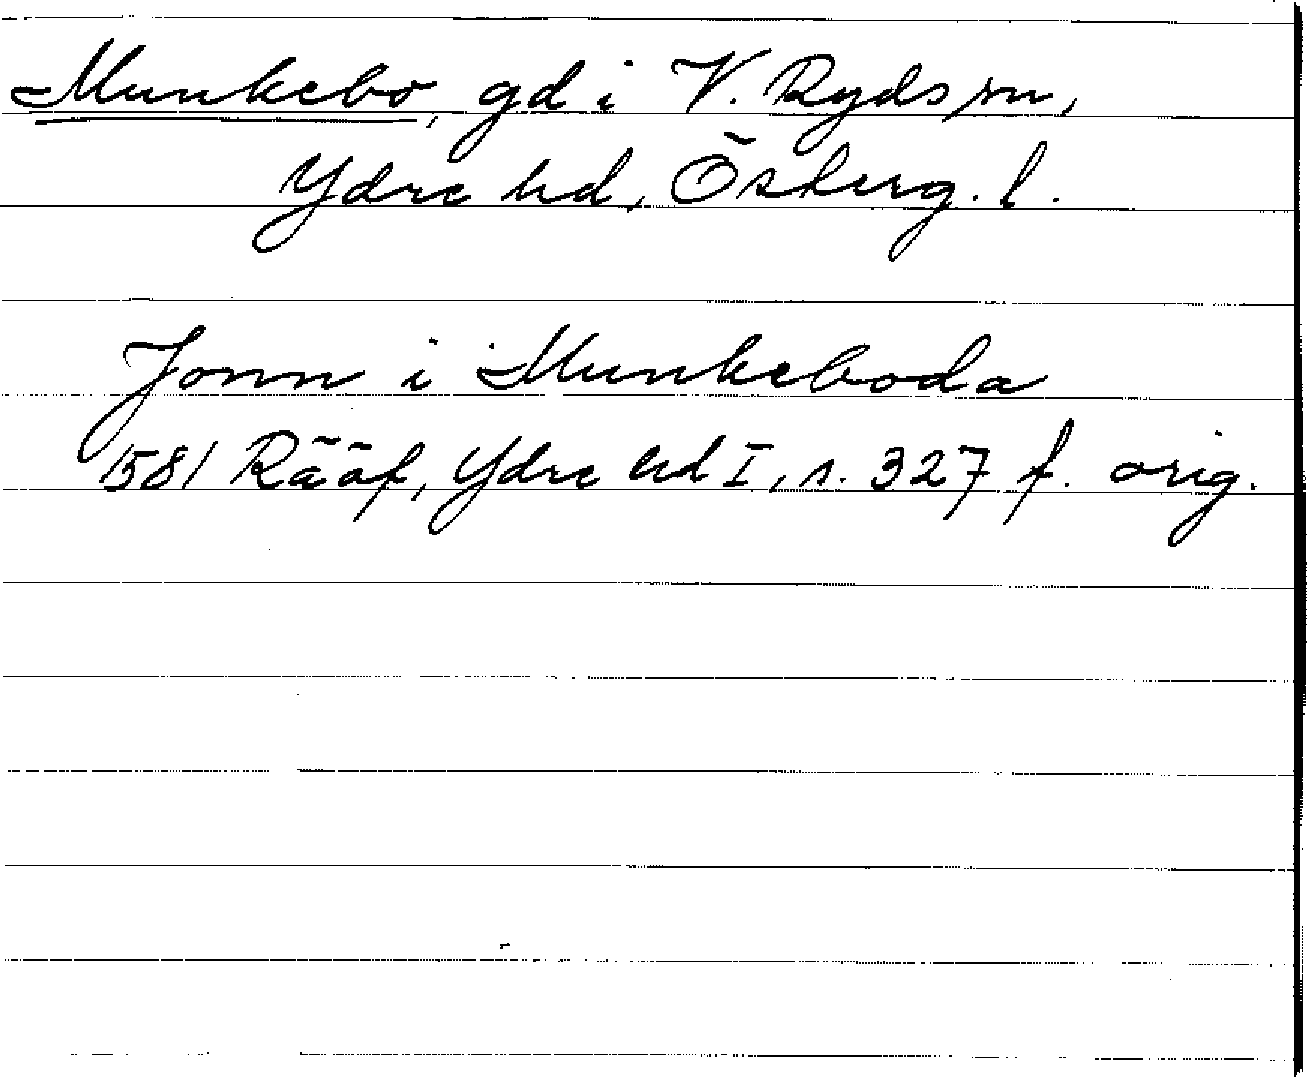 Munkebo, gd i V. Ryds sn,
Ydre hd, Österg. l.
Jonn i Munkeboda
1581 Rääf, Ydre hd I, s. 327 f. orig.